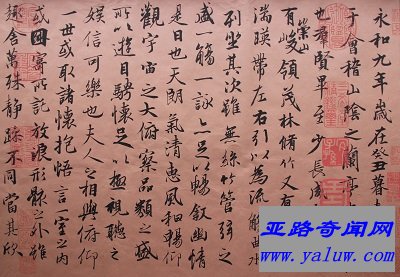 永和九年歲在癸丑暮
于會稽山陰之蘭亭
也群賢畢至少長咸
有崇山峻領茂林脩竹又有
湍暎帶左右引以為流觴曲水
列坐其次雖無絲竹管弦之
盛一觴一詠亦足以暢敘幽情
是日也天朗氣清惠風和暢仰
觀宇宙之大俯察品類之盛
所以遊目騁懷足以極視聽之
娛信可樂也夫人之相與俯仰
一世或取諸懷抱悟言一室之內
或因寄所託放浪形骸之外雖
趣舍萬殊靜躁不同當其欣
亚路奇闻网
www.yaluw.com